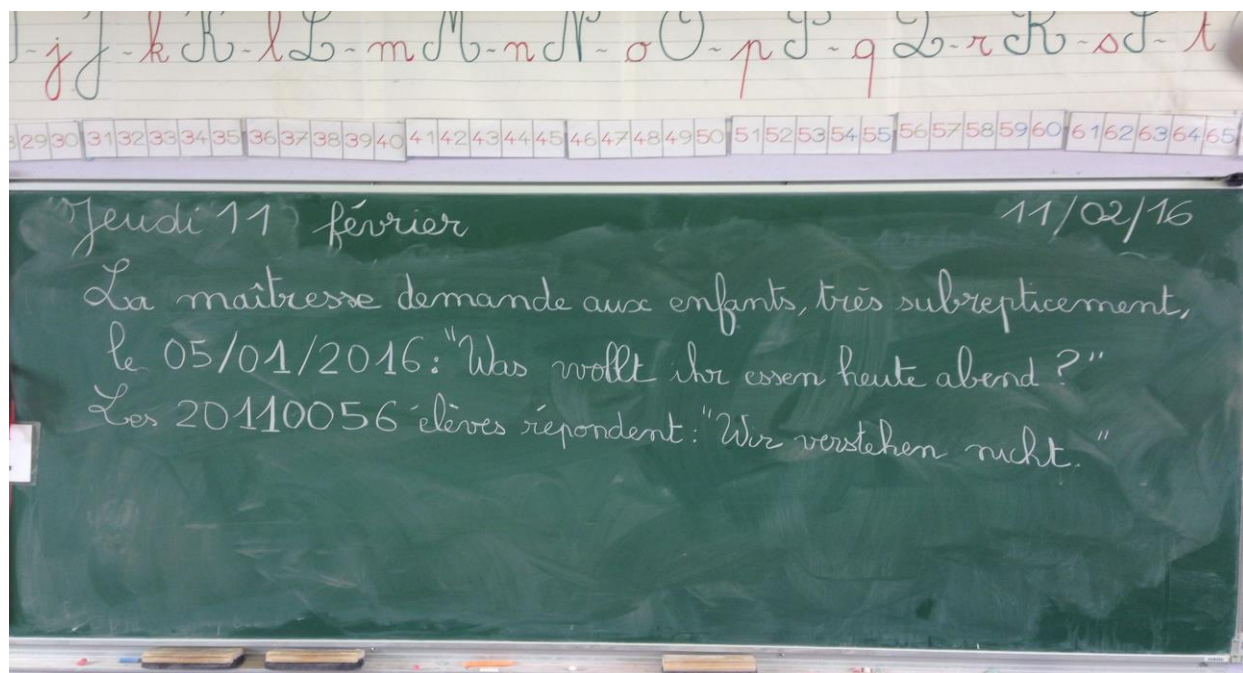 j J - k K - l L - m M - n N - o O - p P - q Q - r R - s S - t
29 30 31 32 33 34 35 36 37 38 39 40 41 42 43 44 45 46 47 48 49 50 51 52 53 54 55 56 57 58 59 60 61 62 63 64 65
Jeudi 11 février 11/02/16
La maîtresse demande aux enfants, très subrepticement,
le 05/01/2016: "Was wollt ihr essen heute abend ?"
Les 20110056 élèves répondent: "Wir verstehen nicht."